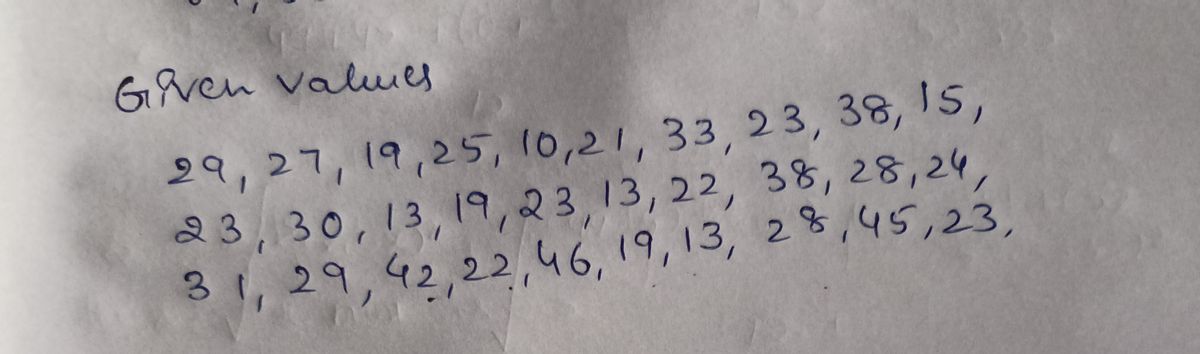 Given values
29, 27, 19, 25, 10, 21, 33, 23, 38, 15,
23, 30, 13, 19, 23, 13, 22, 38, 28, 24,
31, 29, 42, 22, 46, 19, 13, 28, 45, 23,